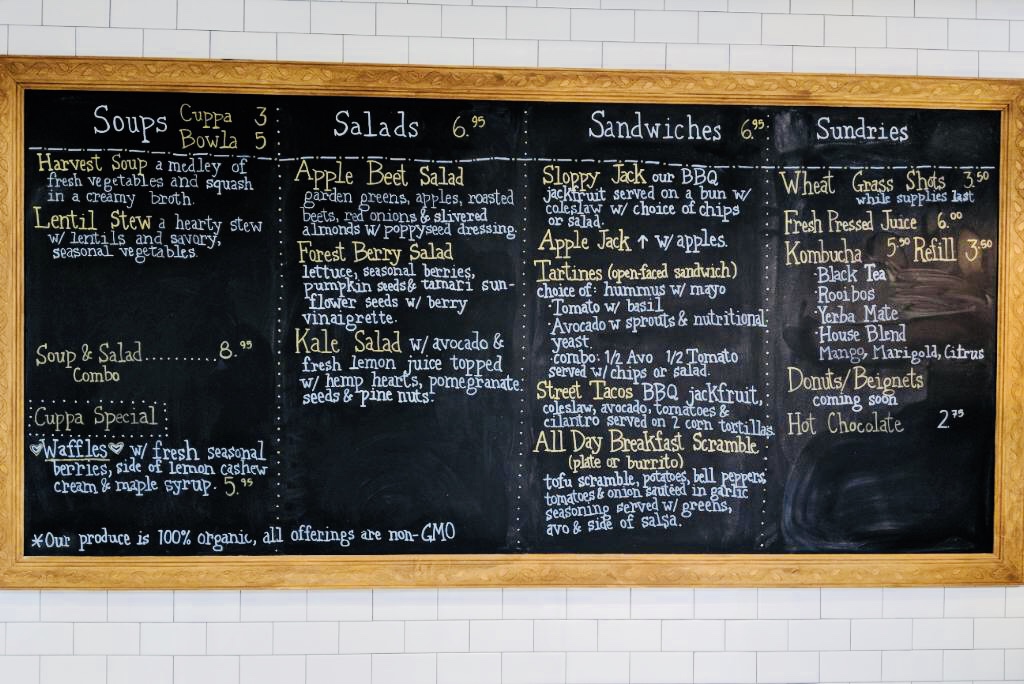 Soups Cuppa 3
Bowla 5
Harvest Soup a medley of
fresh vegetables and squash
in a creamy broth.
Lentil Stew a hearty stew
w/ lentils and savory,
seasonal vegetables.
Soup & Salad.........8.95
Combo
Cuppa Special
Waffles w/ fresh seasonal
berries, side of lemon cashew
cream & maple syrup. 5.95
*Our produce is 100% organic, all offerings are non-GMO
Salads 6.95
Apple Beet Salad
garden greens, apples, roasted
beets, red onions & slivered
almonds w/ poppyseed dressing.
Forest Berry Salad
lettuce, seasonal berries,
pumpkin seeds & tamari sun-
flower seeds w/ berry
vinaigrette.
Kale Salad w/ avocado &
fresh lemon juice topped
w/ hemp hearts, pomegranate
seeds & pine nuts.
Sandwiches 6.95
Sloppy Jack our BBQ
jackfruit served on a bun w/
coleslaw w/ choice of chips
or salad.
Apple Jack ↑ w/ apples.
Tartines (open-faced sandwich)
choice of: hummus w/ mayo
·Tomato w/ basil
·Avocado w sprouts & nutritional
yeast
combo: 1/2 Avo 1/2 Tomato
served w/ chips or salad.
Street Tacos BBQ jackfruit,
coleslaw, avocado, tomatoes &
cilantro served on 2 corn tortillas.
All Day Breakfast Scramble
(plate or burrito)
tofu scramble, potatoes, bell peppers
tomatoes & onion sautéed in garlic
seasoning served w/ greens,
avo & side of salsa.
Sundries
Wheat Grass Shots 3.50
while supplies last
Fresh Pressed Juice 6.00
Kombucha 5.50 Refill 3.50
·Black Tea
·Rooibos
·Yerba Mate
·House Blend
Mango, Marigold, Citrus
Donuts/Beignets
coming soon
Hot Chocolate 2.75